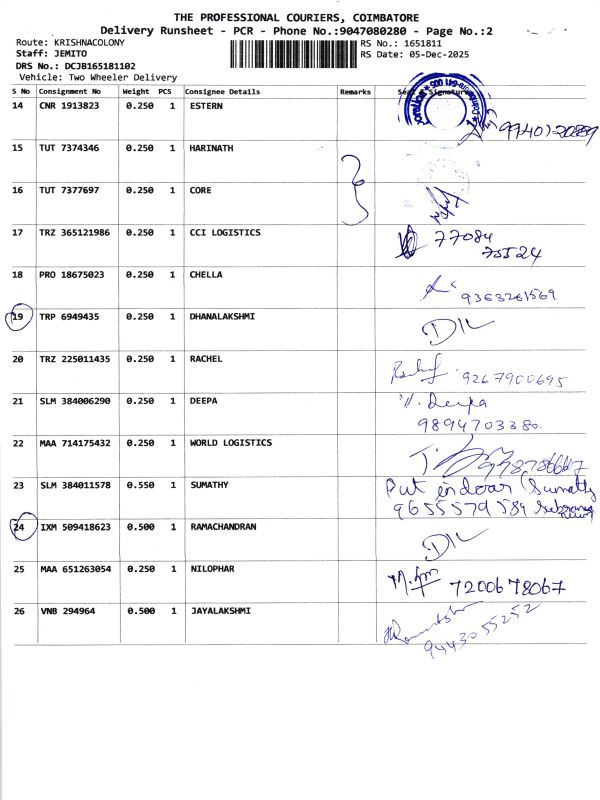 THE PROFESSIONAL COURIERS, COIMBATORE
Delivery Runsheet - PCR - Phone No.:9047080280 - Page No.:2
Route: KRISHNACOLONY RS No.: 1651811
Staff: JEMITO RS Date: 05-Dec-2025
DRS No.: DCJB165181102
Vehicle: Two Wheeler Delivery
S No Consignment No Weight PCS Consignee Details Remarks Signature
14 CNR 1913823 0.250 1 ESTERN
15 TUT 7374346 0.250 1 HARINATH
16 TUT 7377697 0.250 1 CORE
17 TRZ 365121986 0.250 1 CCI LOGISTICS 77084
75524
18 PRO 18675023 0.250 1 CHELLA 9363261569
19 TRP 6949435 0.250 1 DHANALAKSHMI D/L
20 TRZ 225011435 0.250 1 RACHEL 9267900695
21 SLM 384006290 0.250 1 DEEPA V. Deepa
9894703380.
22 MAA 714175432 0.250 1 WORLD LOGISTICS
23 SLM 384011578 0.550 1 SUMATHY Put indoor (Sumathy
9655579589
24 IXM 509418623 0.500 1 RAMACHANDRAN D/L
25 MAA 651263054 0.250 1 NILOPHAR 7200678067
26 VNB 294964 0.500 1 JAYALAKSHMI 9443055252